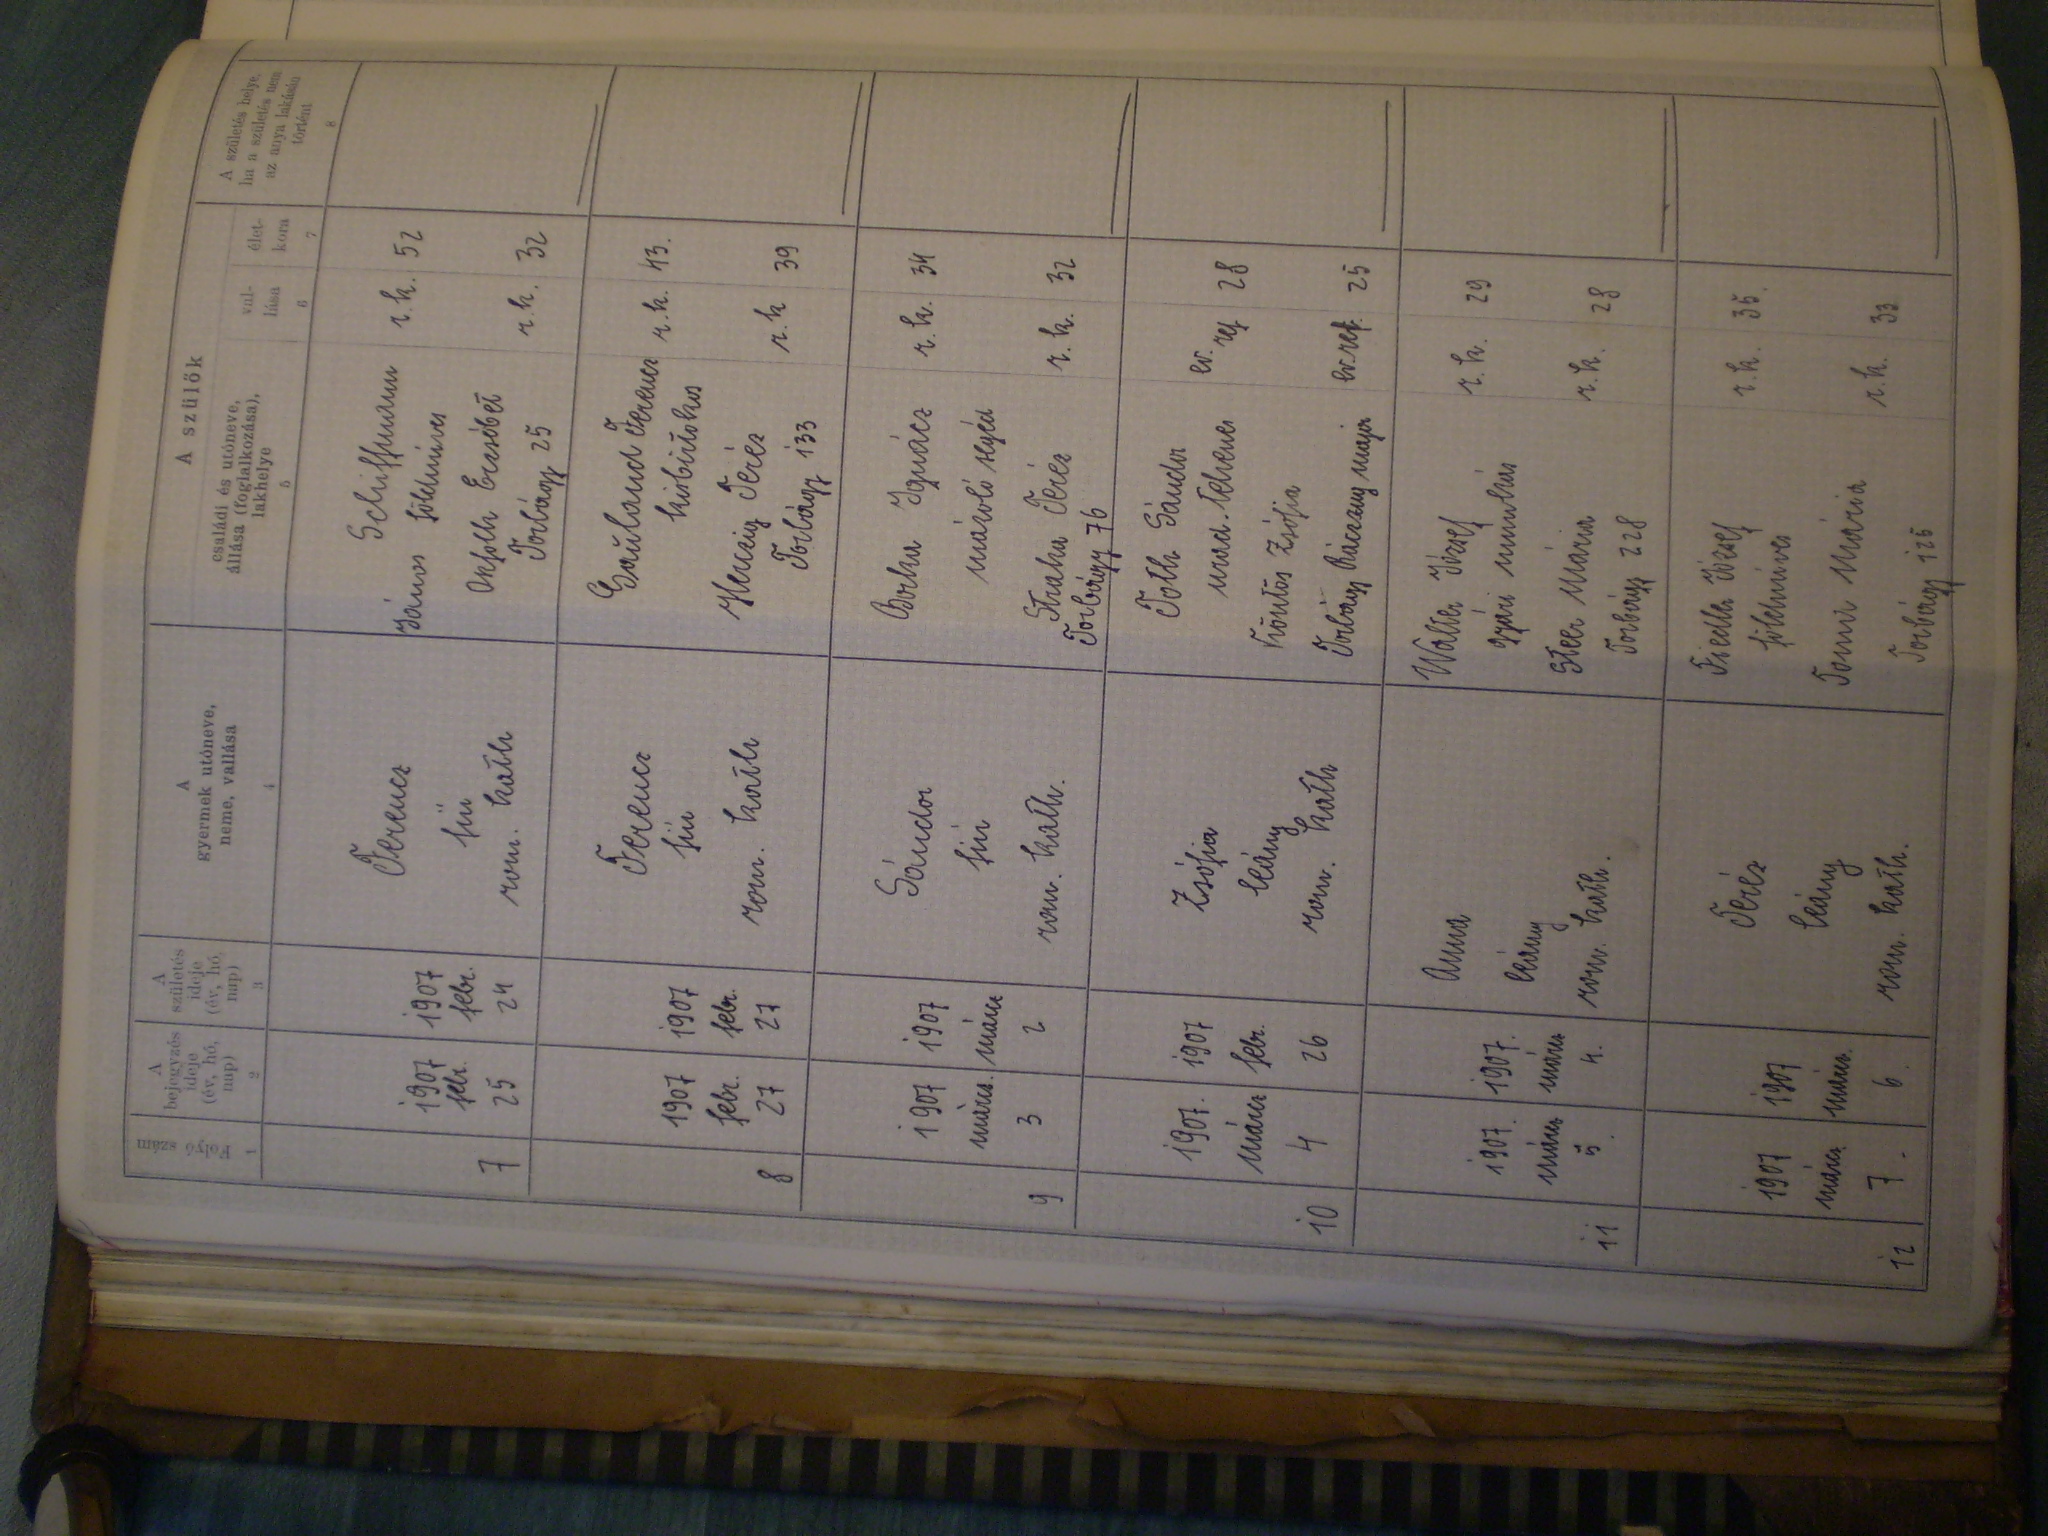 Folyó szám
1
A bejegyzés ideje (év, hó, nap)
2
A születés ideje (év, hó, nap)
3
A gyermek utóneve, neme, vallása
4
A szülők
családi és utóneve, állása (foglalkozása), lakhelye
5
vallása
6
életkora
7
A születés helye, ha a születés nem az anya lakásán történt
8
7
1907 febr. 25
1907 febr. 24
Ferencz
fiú
rom. kath
Schiffmann
János földmíves
Erzsébet
Torbágy 25
r. k. 52
r. k. 32
8
1907 febr. 27
1907 febr. 27
Ferencz
fiú
rom. kath
Ferencz
kisbirtokos
Herczig Teréz
Torbágy 133
r. k. 43.
r. k 39
9
1907 márcz. 3
1907 márcz 2
Sándor
fiú
rom. kath.
Ignácz
segéd
Straka Teréz
Torbágy 76
r. k. 34
r. k. 32
10
1907. márcz 4
1907 febr. 26
Zsófia
leány
rom. kath
Toth Sándor
urad. tehenes
Kóntos Zsófia
Torbágy major
ev. ref 28
ev. ref. 25
11
1907. márcz 5.
1907. márcz 4.
Anna
leány
rom. kath.
József
gyári munkás
Steer Mária
Torbágy 228
r. k. 29
r. k. 28
12
1907 márcz. 7.
1907 márcz. 6.
Teréz
leány
rom. kath.
Friedl József
földmíves
Tomn Mária
Torbágy 126
r. k. 35.
r. k. 33